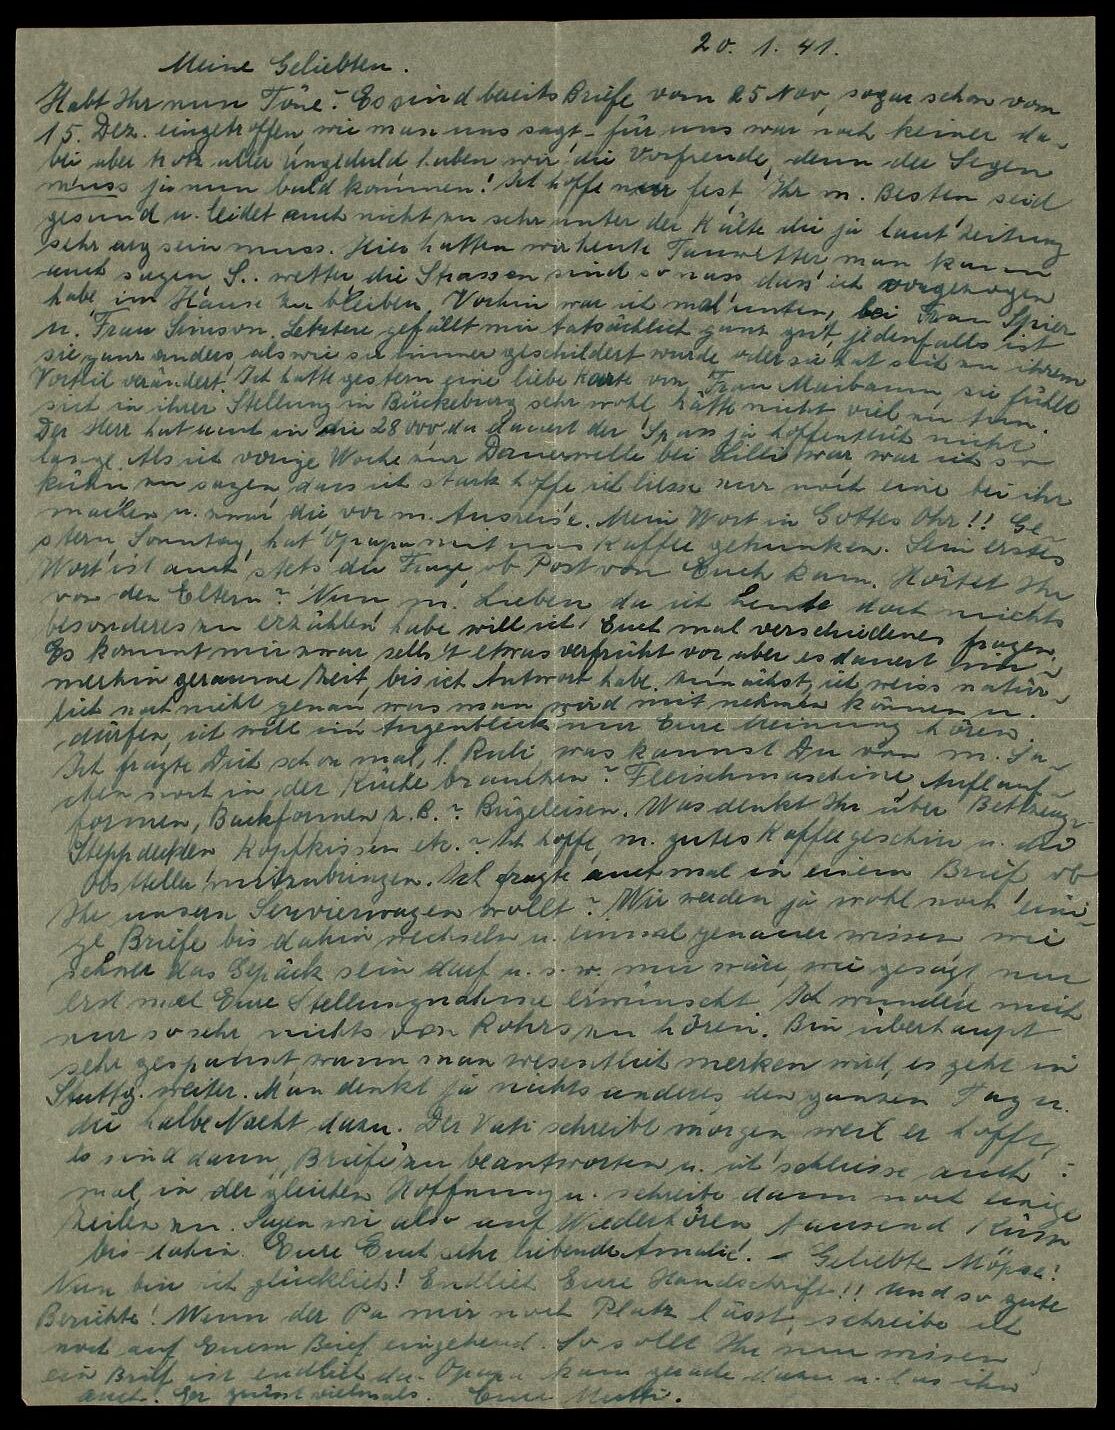 20. 1. 41.
Meine Geliebten.
Habt Ihr nun Töne? Es sind bereits Briefe vom 25 Nov, sogar schon vom
15. Dez. eingetroffen wie man uns sagt – für uns war noch keiner da-
bei aber trotz aller Ungeduld haben wir die Vorfreude, denn der Segen
muss ja nun bald kommen! Ich hoffe nur fest, Ihr m. Besten seid
gesund u. leidet auch nicht zu sehr unter der Kälte die ja laut Zeitung
sehr arg sein muss. Hier hatten wir heute Tauwetter man kann
auch sagen S.. wetter die Strassen sind so nass dass ich vorgezogen
habe im Hause zu bleiben. Vorhin war ich mal unten, bei Frau Spier
u. Frau Simson. Letztere gefällt mir tatsächlich ganz gut, jedenfalls ist
sie ganz anders, als wie sie immer geschildert wurde oder sie hat sich zu ihrem
Vorteil verändert. Ich hatte gestern eine liebe Karte von Frau Maibaum, sie fühlt
sich in ihrer Stellung in Bückeburg sehr wohl, hätte nicht viel zu tun.
Der Herr hat auch in die 28 000, da dauert der Spass ja hoffentlich nicht
lange. Als ich vorige Woche zur Dauerwelle bei Lilli war, war ich so
kühn zu sagen, dass ich stark hoffe ich liesse nur noch eine bei ihr
machen u. zwar die vor m. Ausreise. Mein Wort in Gottes Ohr!! Ge-
stern, Sonntag, hat Opapa mit uns Kaffee getrunken. Sein erstes
Wort ist auch stets die Frage ob Post von Euch kam. Hörtet Ihr
von den Eltern? Nun m. Lieben da ich heute doch nichts
besonderes zu erzählen habe will ich Euch mal verschiedenes fragen.
Es kommt mir zwar selbst etwas verfrüht vor, aber es dauert im-
merhin geraume Zeit, bis ich Antwort habe. Zunächst, ich weiss natür-
lich noch nicht genau was man wird mit nehmen können u.
dürfen, ich will im Augenblick nur Eure Meinung hören.
Ich fragte Dich schon mal, l. Ruli was kannst Du von m. Sa-
chen noch in der Küche brauchen? Fleischmaschine, Auflauf-
formen, Backformen z. B.? Bügeleisen. Was denkt Ihr über Bettzeug-
Steppdecken Kopfkissen etc.? Ich hoffe, m. gutes Kaffeegeschirr u. die
Obstteller mitzubringen. Ich fragte auch mal in einem Brief ob
Ihr unsern Servierwagen wollt? Wir werden ja wohl noch eini-
ge Briefe bis dahin wechseln u. einmal genauer wissen wie
schwer das Gepäck sein darf u. s. w. mir wäre, wie gesagt, nur
erst mal Eure Stellungnahme erwünscht. Ich wundere mich
nur so sehr nichts von Rohrs zu hören. Bin überhaupt
sehr gespannt, wann man wesentlich merken wird, es geht in
Stuttg. weiter. Man denkt ja nichts anderes den ganzen Tag u.
die halbe Nacht dazu. Der Vati schreibt morgen weil er hofft,
es sind dann Briefe zu beantworten u. ich schliesse auch
mal, in der gleichen Hoffnung u. schreibe dann noch einige
Zeilen zu. Sagen wir also auf Wiederhören tausend Küsse
bis dahin. Eure Euch sehr liebende Amalie. – Geliebte Möpse!
Nun bin ich glücklich! Endlich Eure Handschrift!! Und so gute
Berichte! Wenn der Pa mir noch Platz lässt, schreibe ich
noch auf Euern Brief eingehend. So sollt Ihr nun wissen
ein Brief ist endlich da. Opapa kam gerade dazu u. las ihn
auch. Er grüsst vielmals. Eure Mutti.